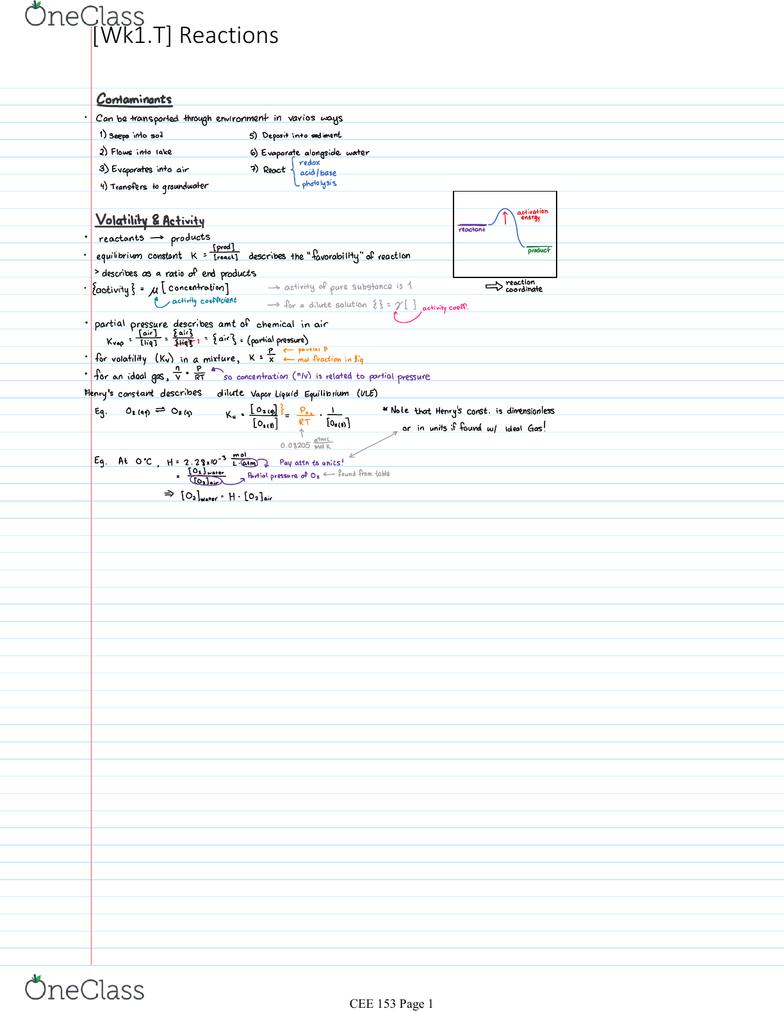 OneClass
[Wk1.T] Reactions
Contaminants
• Can be transported through environment in varios ways
1) Seeps into soil
5) Deposit into sediment
2) Flows into lake
6) Evaporate alongside water
3) Evaporates into air
7) React { redox
acid/base
photolysis
4) Transfers to groundwater
Volatility & Activity
• reactants → products
• equilibrium constant K = [prod]/[react] describes the "favorability" of reaction
> describes as a ratio of end products
• {activity} = μ [concentration]
activity coefficient
→ activity of pure substance is 1
→ for a dilute solution { } = γ [ ]
activity coeff.
reactant
activation
energy
product
⇒ reaction
coordinate
• partial pressure describes amt of chemical in air
Kvap = [air]/[liq] = {air}/{liq} 1 = {air} = (partial pressure)
• for volatility (Kv) in a mixture, K = P/x
← partial P
← mol fraction in liq
• for an ideal gas, n/V = P/RT
so concentration (n/v) is related to partial pressure
Henry's constant describes dilute Vapor Liquid Equilibrium (VLE)
Eg. O2(aq) ⇌ O2(g)
KH = [O2(g)]/[O2(l)] = Po2/RT · 1/[O2(l)]
0.08205 atm L/mol K
* Note that Henry's const. is dimensionless
or in units if found w/ Ideal Gas!
Eg. At 0°C, H = 2.28x10-3 mol/L·atm
Pay attn to units!
= [O2]water/[O2]air
Partial pressure of O2 ← found from table
⇒ [O2]water = H · [O2]air
OneClass
CEE 153 Page 1